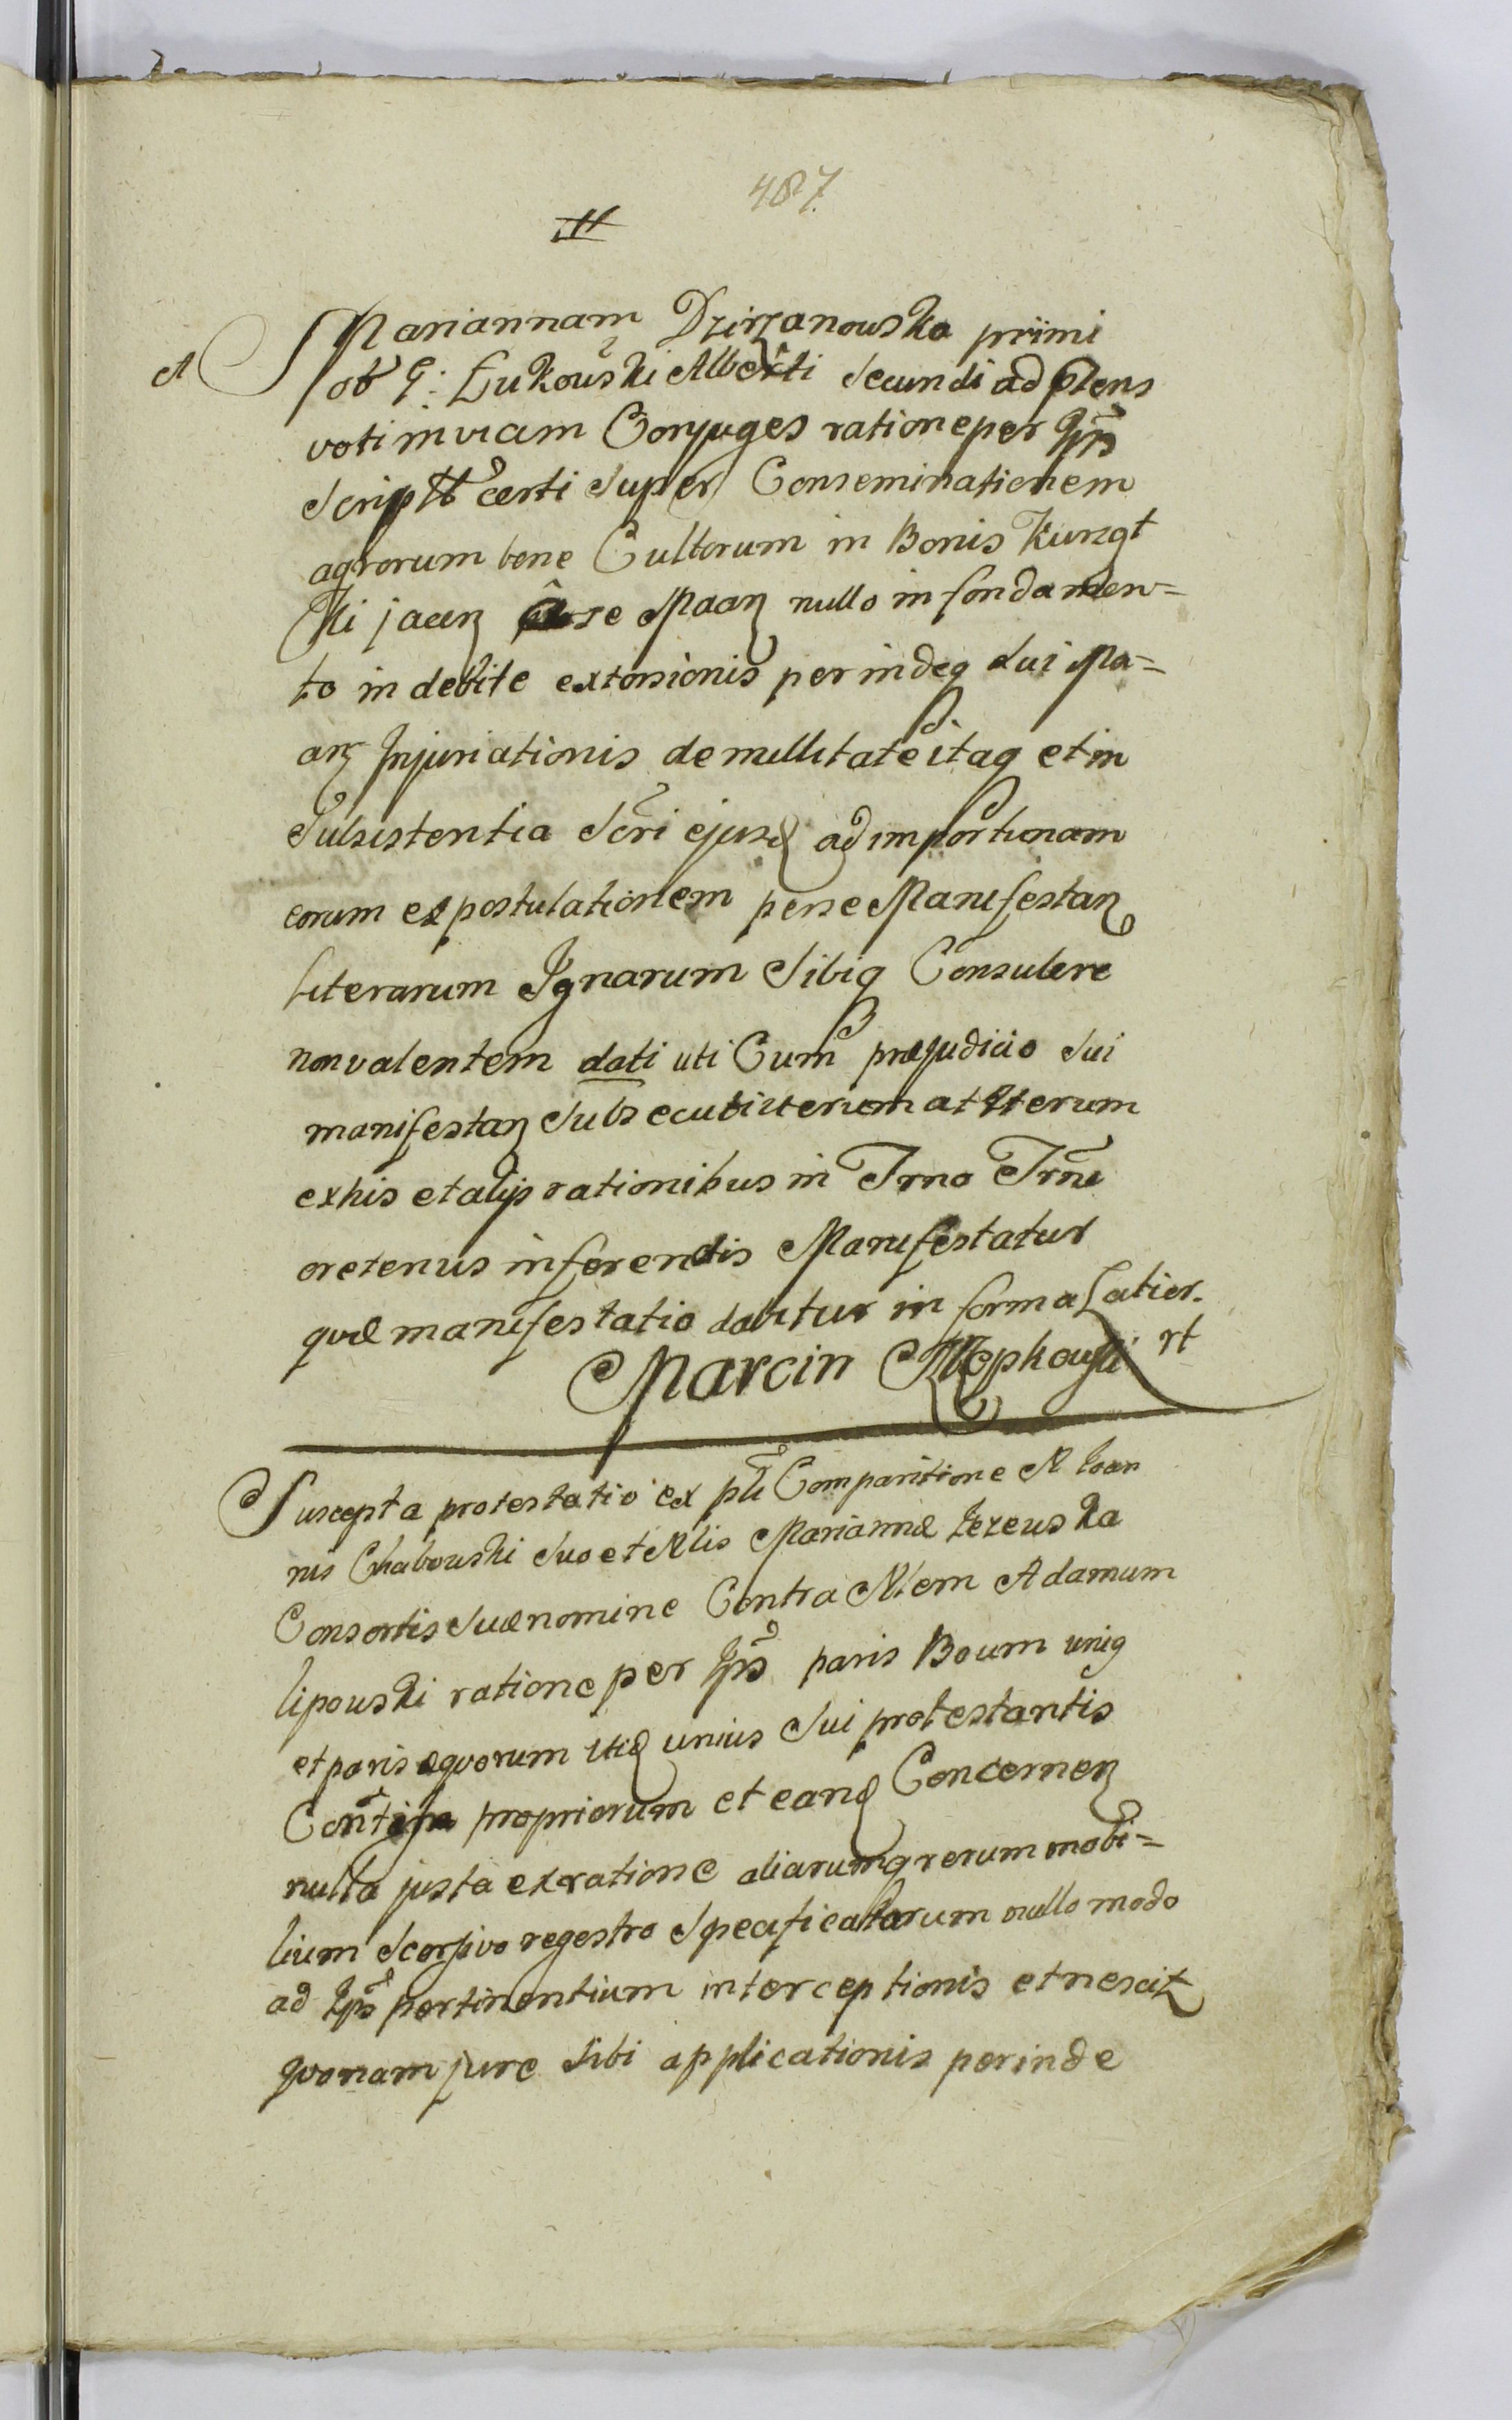 487.
II
A Mariannam Dzirzanouska primi
ob q: Łukouski Alberti Secundi ad plens
voti inviam Conjuges ratione per Ips
Scriptt certi Super Conseminationem
agrorum bene Cultorum in Bonis Kurzgt
ki jacen se Maan nullo in fondamen=
to in debite extorsionis perindeq Sui Ma=
an Injuriationis de nullitate itaq et in
Subsistentia Scri ejusd ad importunam
eorum expostulationem pense Manifestan
literarum Ignarum Sibiq Consulere
non valentem dati uti Cum præjudicio Sui
manifestan Subsecuti iterum at Iterum
ex his et alijs rationibus in Trno Trni
oretenus inferendis Manifestatur
quæ manifestatio dabitur in forma Latior.
Marcin rt
Suscepta protestatio ex pli Comparitione N Ioan
nis Chabouski Suo et Nlis Mariannæ Jezeuska
Consortis Suæ nomine Contra Nlem Adamum
lipouski ratione per Ips paris Boum uniq
et paris equorum itid unius Sui protestantis
propriorum et eand Concernen
nulla justa ex ratione aliarumq rerum mobi=
lium Scorsivo regestro Specificatarum nullo modo
ad Ips pertinentium interceptionis et nescit
quonam jure Sibi applicationis perinde